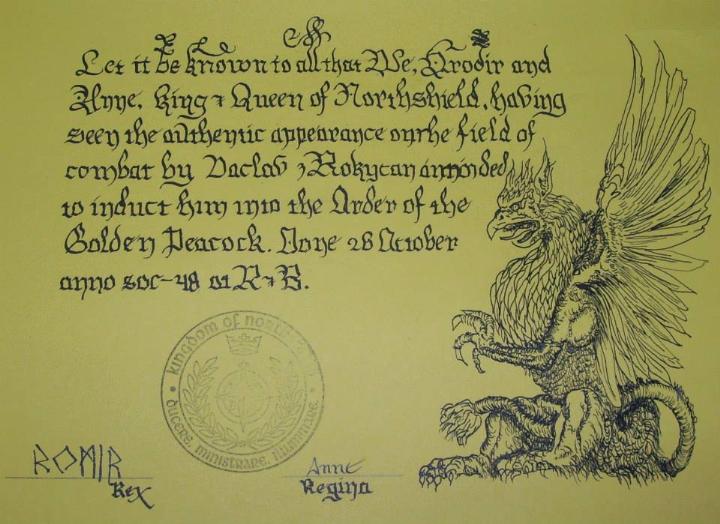 Let it be known to all that We, Hrodir and
Anne, King & Queen of Northshield, having
seen the authentic appearance on the field of
combat by Vaclav z Rokycan am minded
to induct him into the Order of the
Golden Peacock. Done 26 October
anno soc-48 at R&B.
Kingdom of North
DUCERE, MINISTRARE, ILLUMINARE
Rex
Anne
Regina